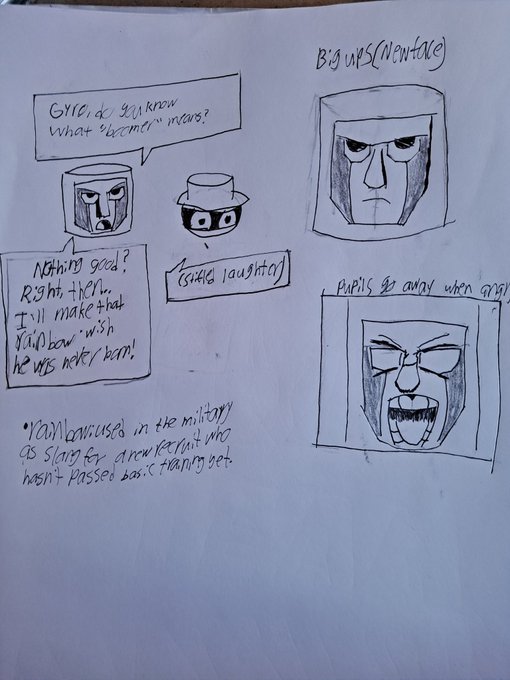 Big ups (New face)
Gyro, do you know
what "boomer" means?
Nothing good?
Right, then..
I'll make that
rainbow* wish
he was never born!
(stifled laughter)
Pupils go away when angry
*rainbow: used in the military
as slang for a new recruit who
hasn't passed basic training yet.